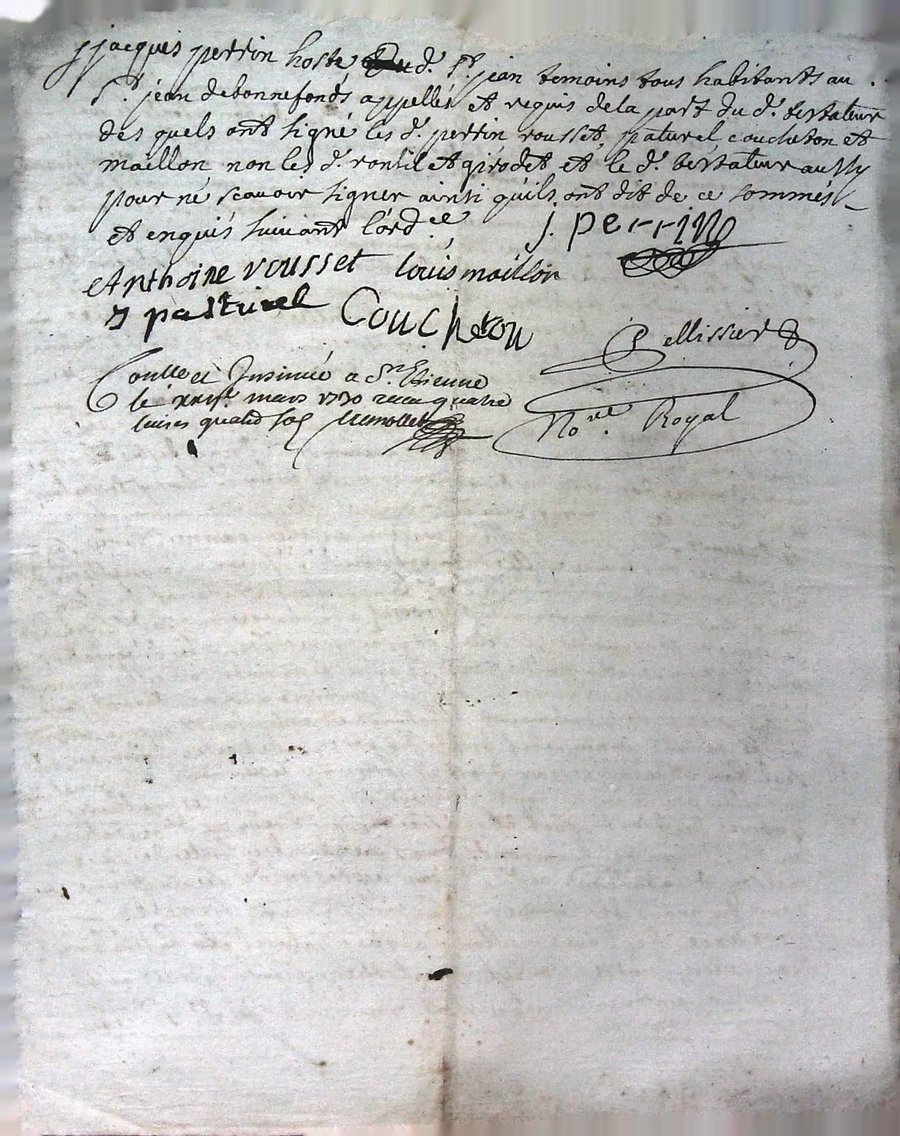 jacques perrin hoste dud. St. jean temoins tous habitants au
St. jean debonnefonds appellés et requis dela part du d. testateur
des quels ont signé les d. perrin rousset, paturel, coucheton et
maillon non les d. et girodet et le d. testateur aussy
pour né scavoir signer ainsi quils ont dit de ce sommés
et enquis suivant lórd.ce
J. perrin
Anthoine rousset louis maillon
J pasturel Coucheton
Pellissier
Conlle et Insinué a St. Etienne
le mars 1730 receu quatre
livres quatre sols
No.re Royal